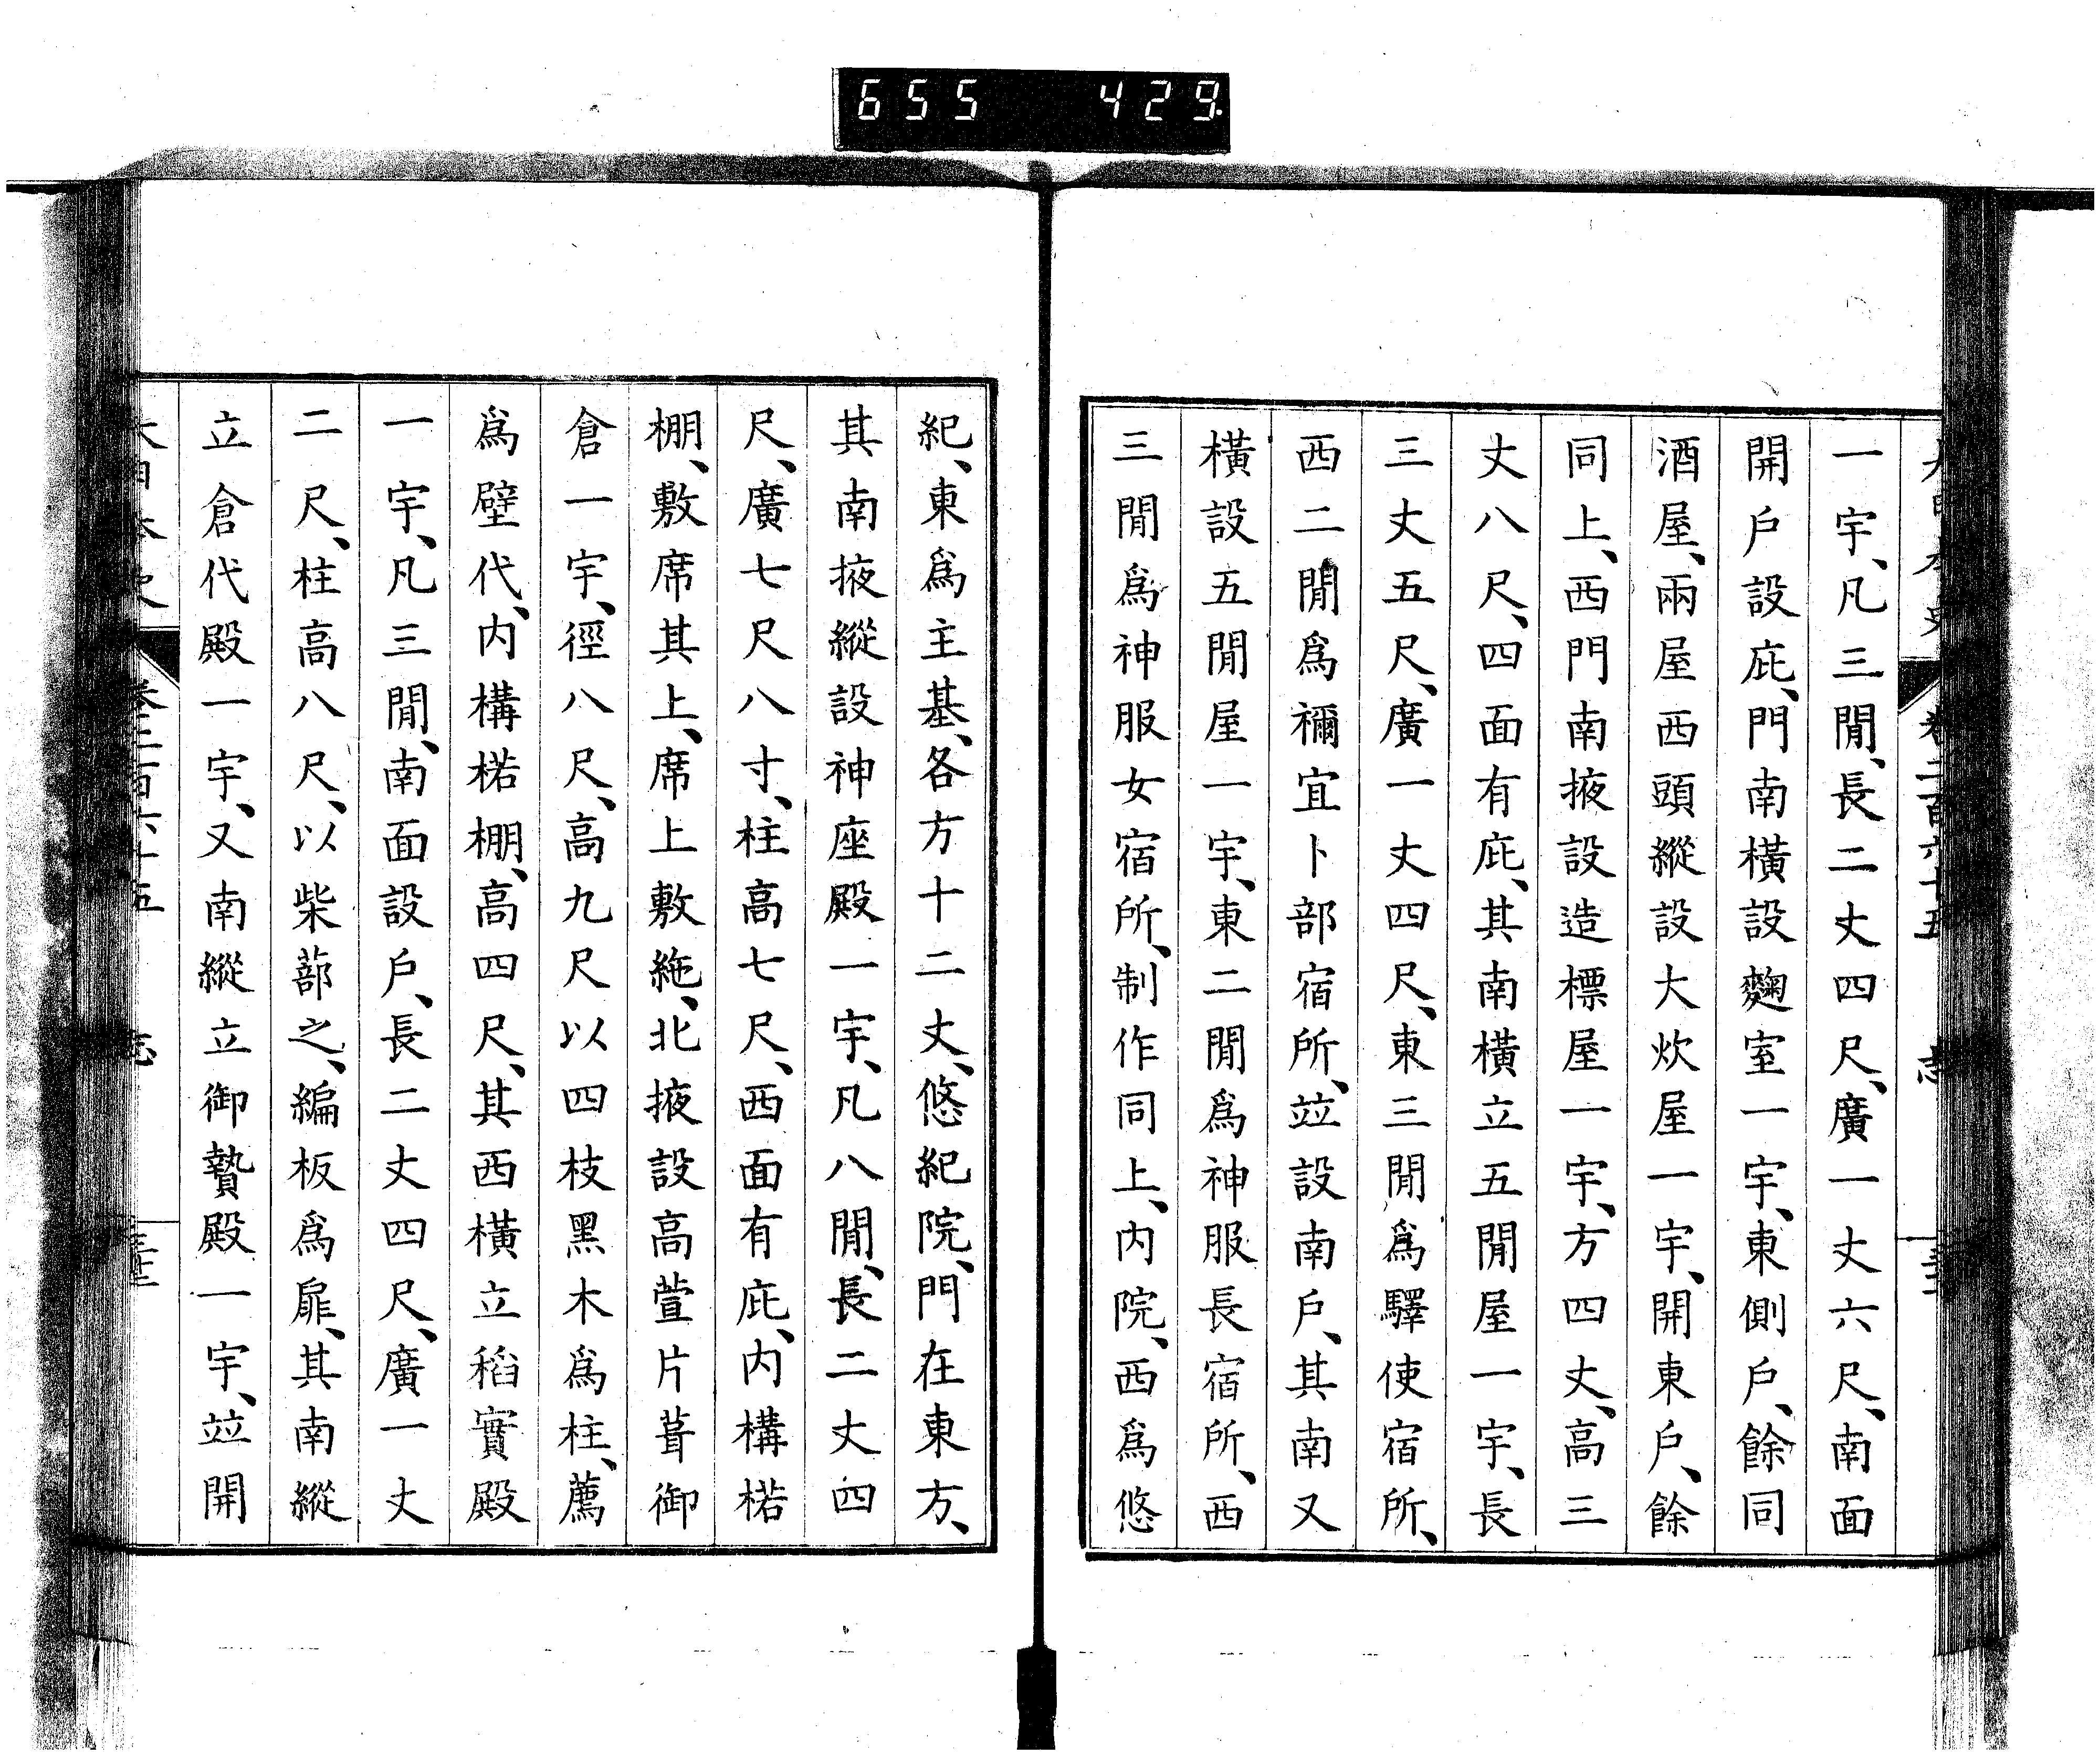 655 429
一宇、凡三閒、長二丈四尺、廣一丈六尺、南面
開戶設庇、門南橫設麴室一宇、東側戶、餘同
酒屋、兩屋西頭縱設大炊屋一宇、開東戶、餘
同上、西門南掖設造標屋一宇、方四丈、高三
丈八尺、四面有庇、其南橫立五閒屋一宇、長
三丈五尺、廣一丈四尺、東三閒爲驛使宿所、
西二閒爲禰宜卜部宿所、竝設南戶、其南又
橫設五閒屋一宇、東二閒爲神服長宿所、西
三閒爲神服女宿所、制作同上、內院、西爲悠
紀、東爲主基、各方十二丈、悠紀院、門在東方、
其南掖縱設神座殿一宇、凡八閒、長二丈四
尺、廣七尺八寸、柱高七尺、西面有庇、內構楉
棚、敷席其上、席上敷絁、北掖設高萱片葺御
倉一宇、徑八尺、高九尺以四枝黑木爲柱、薦
爲壁代、內構楉棚、高四尺、其西橫立稻實殿
一宇、凡三閒、南面設戶、長二丈四尺、廣一丈
二尺、柱高八尺、以柴蔀之、編板爲扉、其南縱
立倉代殿一宇、又南縱立御贄殿一宇、竝開
大日本史 卷二百六十五 志